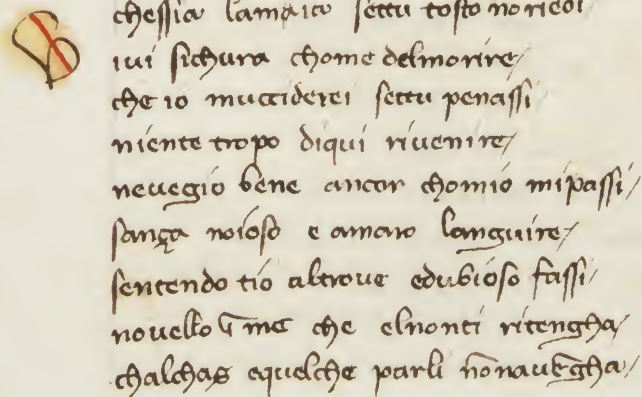 chessia lamaia settu tosto noriedi
S
iui sichura chome delmorire/
che io mucciderei settu penassi
niente tropo diqui riuenire/
neuegio bene ancor chomio mipassi/
sança noioso e amaro languire/
sentendo tio altroue edubioso fassi/
nouello ī me che elnonti ritengha/
chalchas equelche parli nōnauēgha/